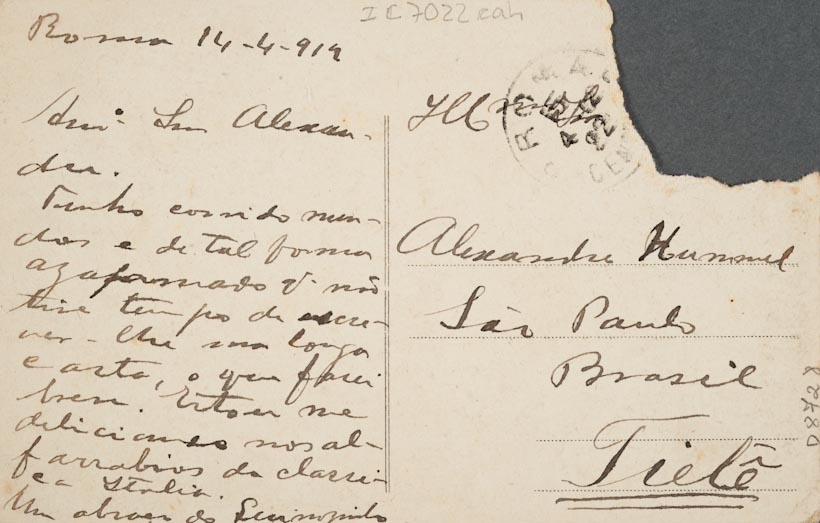 IC7022cah
Roma 14-4-919
Am.º Snr Alexan-
dre.
Tenho corrido mun-
dos e de tal forma
azafamado q. não
tive tempo de escre-
ver-lhe uma longa
carta, o que farei
breve. Estou me
deliciando nos al-
farrabios da classi-
ca Italia.
Um abraço do
ROMA
CEN
Alexandre Hummel
São Paulo
Brasil
Tietê